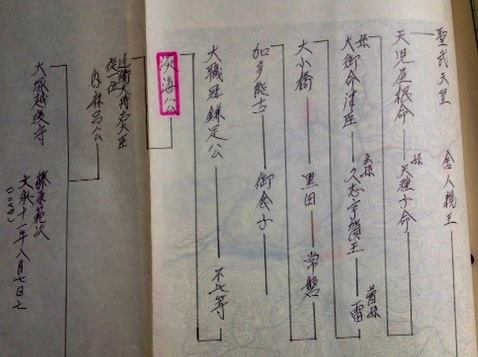 聖武天皇 舎人親王
天児屋根命 孫 天種子命
孫 大御食津臣 玄孫 久志宇賀主 曽孫 雷
大小橋 黒田 常盤
加多能古 御食子
大職冠鎌足公 不比等
淡海公
近衛大将左大臣
従一位
内麻呂公
大原越後守 藤原範次
文永十一年八月七日亡